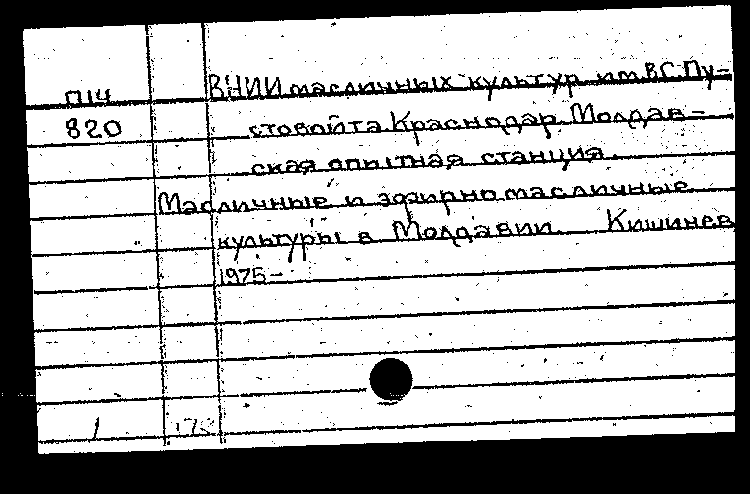 П14 ВНИИ масличных культур им. В.С. Пу-
820 стовойта Краснодар Молдав-
ская опытная станция.
Масличные и эфирномасличные
культуры в Молдавии. Кишинев
1975-
1